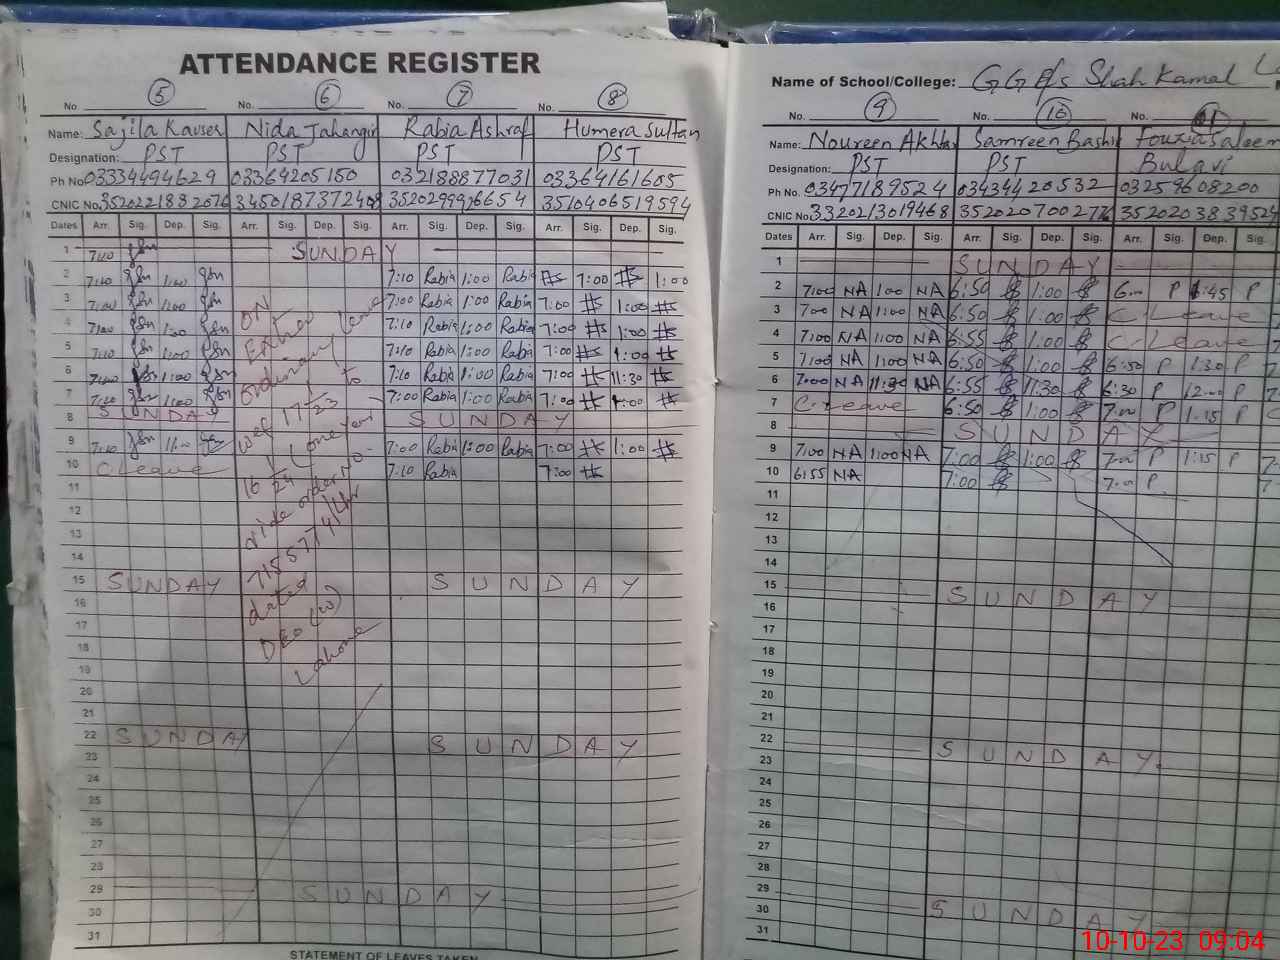 ATTENDANCE REGISTER
No. 5 No. 6 No. 7 No. 8
Name: Sajila Kauser Nida Jahangir Rabia Ashraf Humera Sultan
Designation: PST PST PST PST
Ph No. 03334494629 03364205150 03218887031 03364161605
CNIC No. 3520221882076 3450187372408 3520299926654 3510406519594
Dates Arr. Sig. Dep. Sig. Arr. Sig. Dep. Sig. Arr. Sig. Dep. Sig. Arr. Sig. Dep. Sig.
1 7:10 SUNDAY
2 7:10 1:00 7:10 Rabia 1:00 Rabia 7:00 1:00
3 7:00 1:00 7:00 Rabia 1:00 Rabia 7:00 1:00
4 7:00 1:00 7:10 Rabia 1:00 Rabia 7:00 1:00
5 7:10 1:00 7:10 Rabia 1:00 Rabia 7:00 1:00
6 7:00 1:00 7:10 Rabia 1:00 Rabia 7:00 11:30
7 7:10 1:00 7:00 Rabia 1:00 Rabia 7:00 1:00
8 SUNDAY SUNDAY
9 7:10 7:00 Rabia 1:00 Rabia 7:00 1:00
10 C.leave 7:10 Rabia 7:00
11
12
13
14
15 SUNDAY SUNDAY
16
17
18
19
20
21
22 SUNDAY SUNDAY
23
24
25
26
27
28
29 SUNDAY
30
31
ON
Extra
ordinary leave
wef 17/1/23 to
16/1/24 (one year)
vide order NO.
dated
DEO (W)
Lahore
STATEMENT OF LEAVES TAKEN
Name of School/College: GG P/S Shah Kamal
No. 9 No. 10 No. 11
Name: Noureen Akhtar Samreen Bashir Fouzia Saleem
Designation: PST PST Bulavi
Ph No. 03477189524 03434420532 03259608200
CNIC No. 3320213019468 3520207002776 3520203839524
Dates Arr. Sig. Dep. Sig. Arr. Sig. Dep. Sig. Arr. Sig. Dep. Sig.
1 SUNDAY
2 7:00 NA 1:00 NA 6:50 1:00 6:00 P 1:45 P
3 7:00 NA 1:00 NA 6:50 1:00 C.Leave
4 7:00 NA 1:00 NA 6:55 1:00 C.Leave
5 7:00 NA 1:00 NA 6:50 1:00 6:50 P 1:30 P
6 7:00 NA 11:30 NA 6:55 11:30 6:30 P 12:00 P
7 C.Leave 6:50 1:00 7:00 P 1:15 P
8 SUNDAY
9 7:00 NA 1:00 NA 7:00 1:00 7:00 P 1:15 P
10 6:55 NA 7:00 7:00 P
11
12
13
14
15 SUNDAY
16
17
18
19
20
21
22 SUNDAY
23
24
25
26
27
28
29
30 SUNDAY
31
10-10-23 09:04